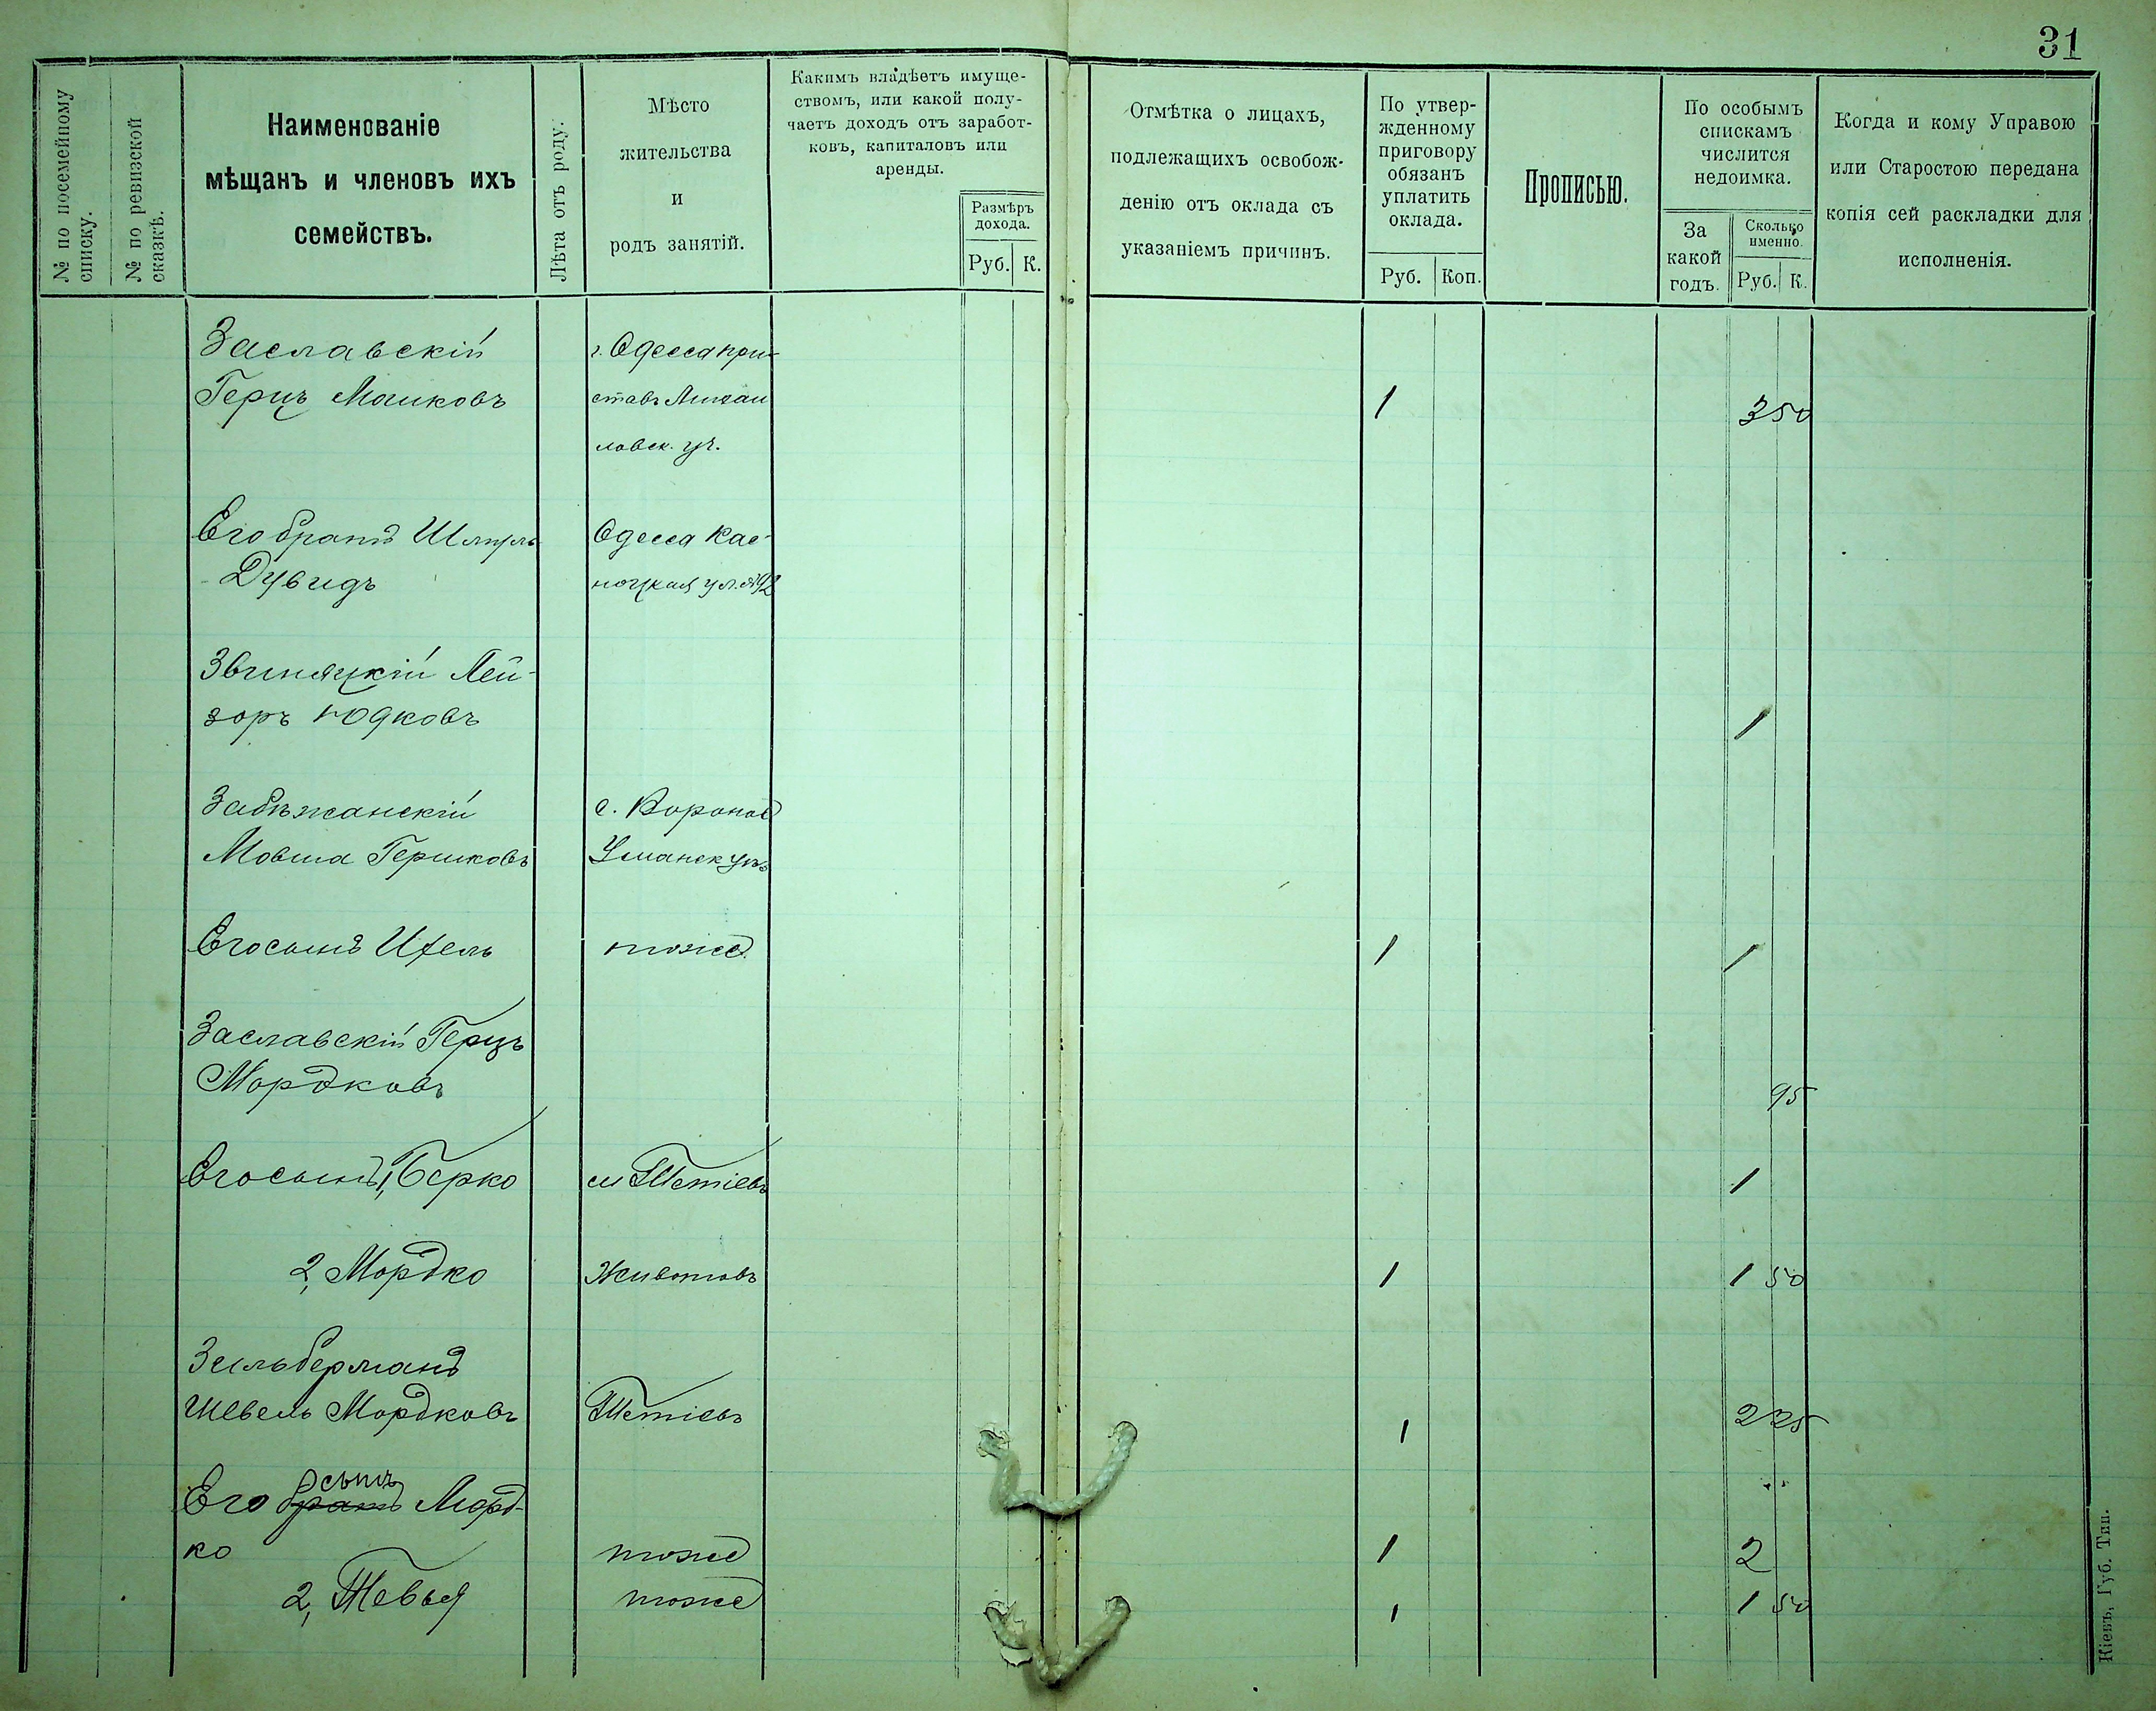 31
№ по посемейному
списку.
№ по ревизской
сказкѣ.
Наименованіе
мѣщанъ и членовъ ихъ
семействъ.
Лѣта отъ роду.
Мѣсто
жительства
и
родъ занятій.
Какимъ владѣетъ имуще-
ствомъ, или какой полу-
чаетъ доходъ отъ заработ-
ковъ, капиталовъ или
аренды.
Размѣръ
дохода.
Руб. К.
Отмѣтка о лицахъ,
подлежащихъ освобож-
денію отъ оклада съ
указаніемъ причинъ.
По утвер-
жденному
приговору
обязанъ
уплатить
оклада.
Руб. Коп.
Прописью.
По особымъ
спискамъ
числится
недоимка.
За
какой
годъ.
Сколько
именно.
Руб. К.
Когда и кому Управою
или Старостою передана
копія сей раскладки для
исполненія.
Заславскій г. Одесса при-
Герцъ Мошковъ ставъ Михаи 1 3 50
ловск. уч.
Его братъ Шмуль Одесса
Дувидъ ул. №92
Звиняцкій Лей-
зоръ Юдковъ 1
Забѣжанскій с. Воронов
Мовша Гершковъ Уманск уѣз
Его сынъ Ихель тоже 1 1
Заславскій Герцъ
Мордковъ 95
Его сынъ 1, Берко м Тетіевъ 1
2, Мордко Животовъ 1 1 50
Зильберманъ
Шевель Мордковъ Тетіевъ 1 2 25
сынъ
Его братъ Морд-
ко тоже 1 2
2, Тевья тоже 1 1 50
Кіевъ, Губ. Тип.